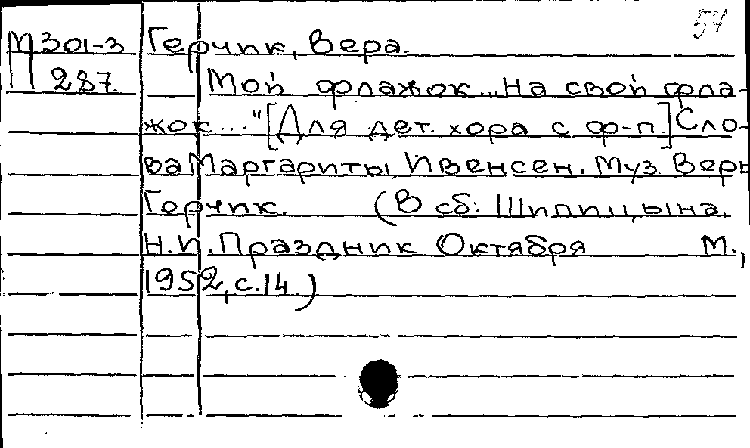 54
М 301-3 Герчик, Вера.
287. Мой флажок „На свой фла-
жок..." [Для дет. хора с ф-п.] Сло-
ва Маргариты Ивенсен. Муз. Веры
Герчик. (В сб: Шипицына,
Н.И. Праздник Октября М.,
1952, с.14.)